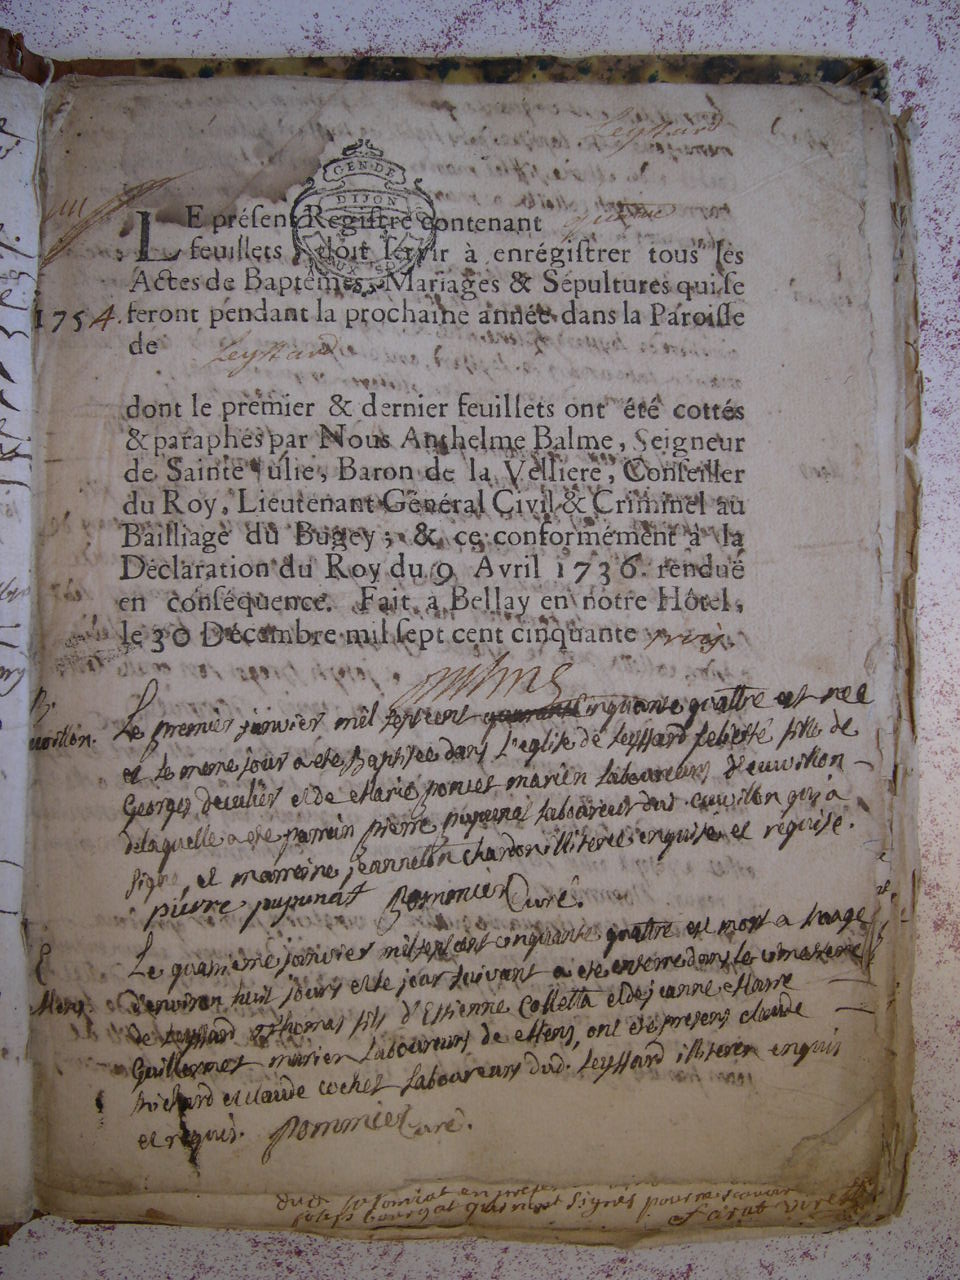 Leyssard
GEN. DE
DIJON
LE présent Registre contenant
feuillets, doit servir à enrégistrer tous les
Actes de Baptêmes, Mariages & Sépultures qui se
1754. feront pendant la prochaine année dans la Paroisse
de Leyssard
dont le premier & dernier feuillets ont été cottés
& paraphés par Nous Anthelme Balme, Seigneur
de Sainte Julie, Baron de la Velliere, Conseiller
du Roy, Lieutenant Général Civil & Criminel au
Bailliage du Bugey; & ce conformément à la
Déclaration du Roy du 9 Avril 1736. renduë
en conséquence. Fait à Bellay en notre Hôtel,
le 30 Décembre mil sept cent cinquante trois.
B. Le premier janvier mil sept cent cinquante quattre est née
et le meme jour a eté Baptisée dans L'eglise de Leyssard fille de
Georges et de Marie mariés Laboureurs
de laquelle a eté parrein pierre pupunat laboureur dud. qui a
signé, et marreine jeannette chardon illiterée enquise et réquise.
pierre pupunat pommier Curé.
Le janvier mil sept cent cinquante quattre est mort a l'aage
d'environ huit jours et le jour suivant a eté enterré dans le cimetiere
de Leyssard Thomas fils d'Estienne Colletta et de jeanne Marie
Guillermet mariés Laboureurs de Mens, ont eté presens claude
et claude cochet Laboureurs dud. Leyssard illiterés enquis
et requis. pommier Curé.